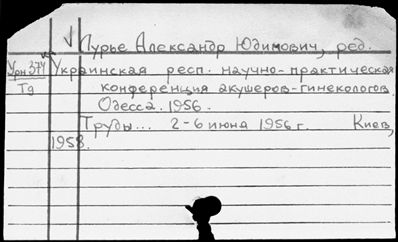 Лурье Александр Юдимович, ред.
Урн374 Украинская респ. научно-практическая
Тд конференция акушеров-гинекологов.
Одесса. 1956.
Труды... 2-6 июня 1956 г. Киев,
1958.